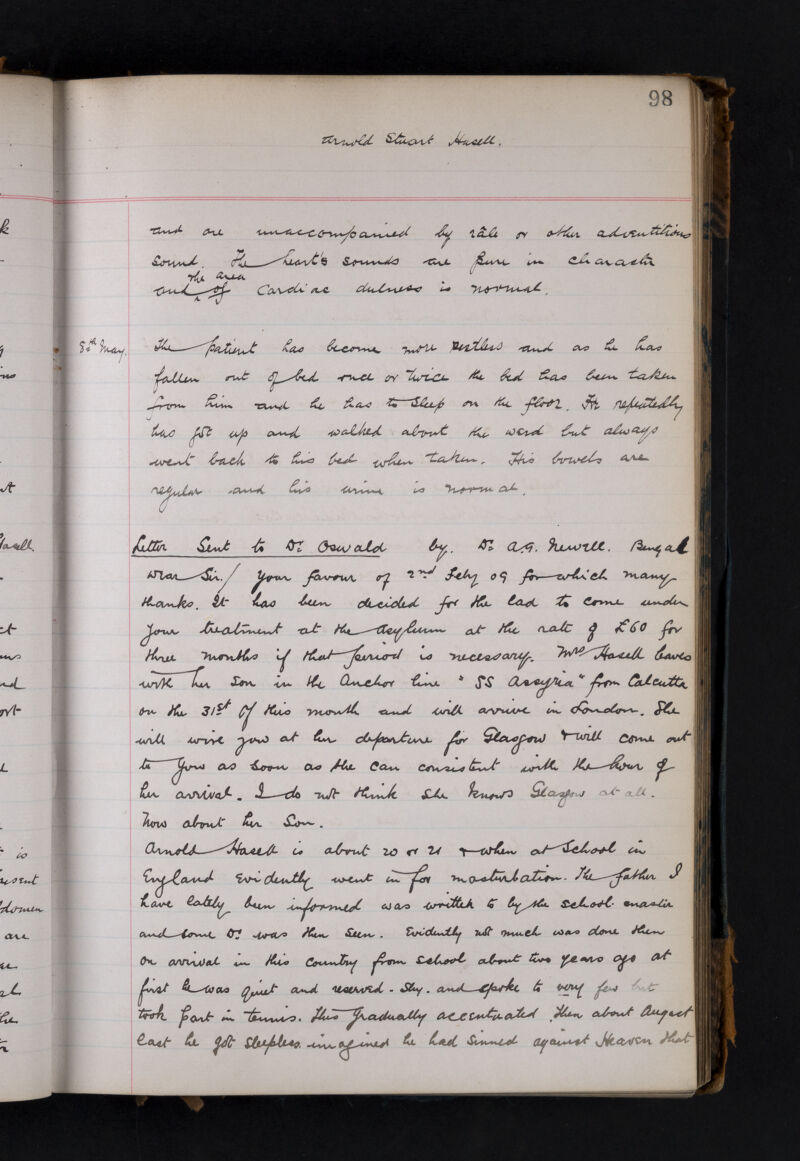 98
Arnold Stuart Hasell.
and are unaccompanied by râle or other adventitious
sound. The heart's sounds are pure in character
and the area of cardiac dulness is normal.
8th May. The patient has become more restless and as he has
fallen out of bed once or twice the bed has been taken
from him and he has to sleep on the floor. He repeatedly
has got up and walked about the ward but always
went back to his bed when taken. His bowels are
regular and his urine is normal.
Letter Sent to Dr Oswald by. Dr A.G. Newell. Bengal
Dear Sir/ Your favour of 2nd Feby 09 for which many
thanks. It has been decided for the lad to come under
your treatment at the Asylum at the rate of £60 for
three months if that period is necessary. Mrs Hasell leaves
with her son in the Anchor line "SS Assyria" from Calcutta
on the 31st of this month and will arrive in London. She
will wire you at her departure for Glasgow & will come out
to you as soon as she can consistent with the hour of
her arrival. I do not think she knows Glasgow at all.
Now about her Son.
Arnold Hasell is about 20 or 21 & when at School in
England evidently went in for masturbation. The father I
have lately been informed was written to by the school master
and some Dr was then seen. Evidently not much was done then
on arrival in this country from school about two years ago at
first he was quiet and reserved. Shy. and spoke to very few but
took part in tennis. This gradually accentuated. Then about August
last he got sleepless imagined he had sinned against Heaven that